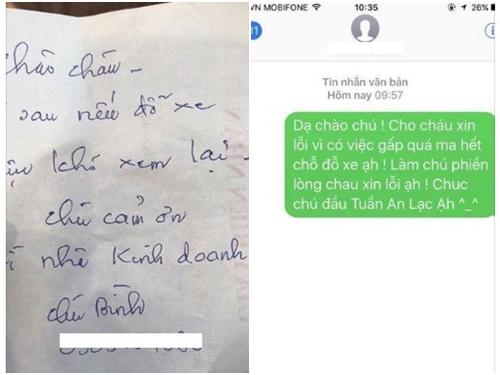 chào cháu -
sau nếu đỗ xe
khó xem lại -
chú cảm ơn
nhà kinh doanh
chú Bình
VN MOBIFONE 10:35 26%
Tin nhắn văn bản
Hôm nay 09:57
Dạ chào chú ! Cho cháu xin
lỗi vì có việc gấp quá ma hết
chỗ đỗ xe ạh ! Làm chú phiền
lòng chau xin lỗi ạh ! Chuc
chú đầu Tuần An Lạc Ạh ^_^